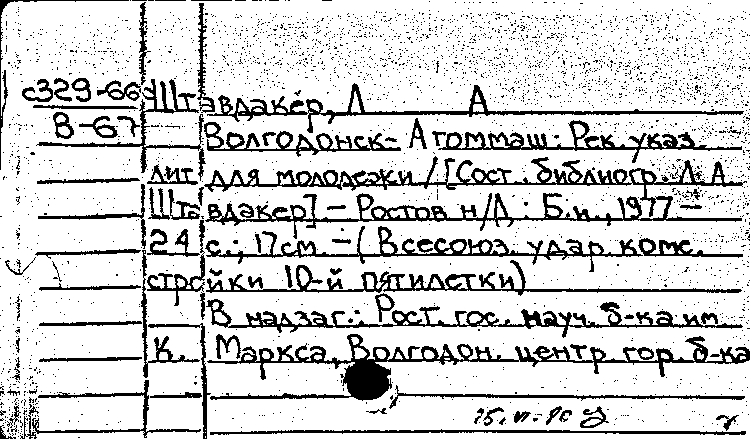 с329-66 Штавдакер, Л А
В-67
Волгодонск- Атоммаш: Рек. указ.
лит. для молодежи / [Сост. библиогр. Л. А.
Штавдакер] - Ростов н/Д : Б.и., 1977 -
24 с.; 17см. - ( Всесоюз. удар. комс.
стройки 10-й пятилетки)
В надзаг.: Рост. гос. науч. б-ка им.
К. Маркса, Волгодон. центр. гор. б-ка